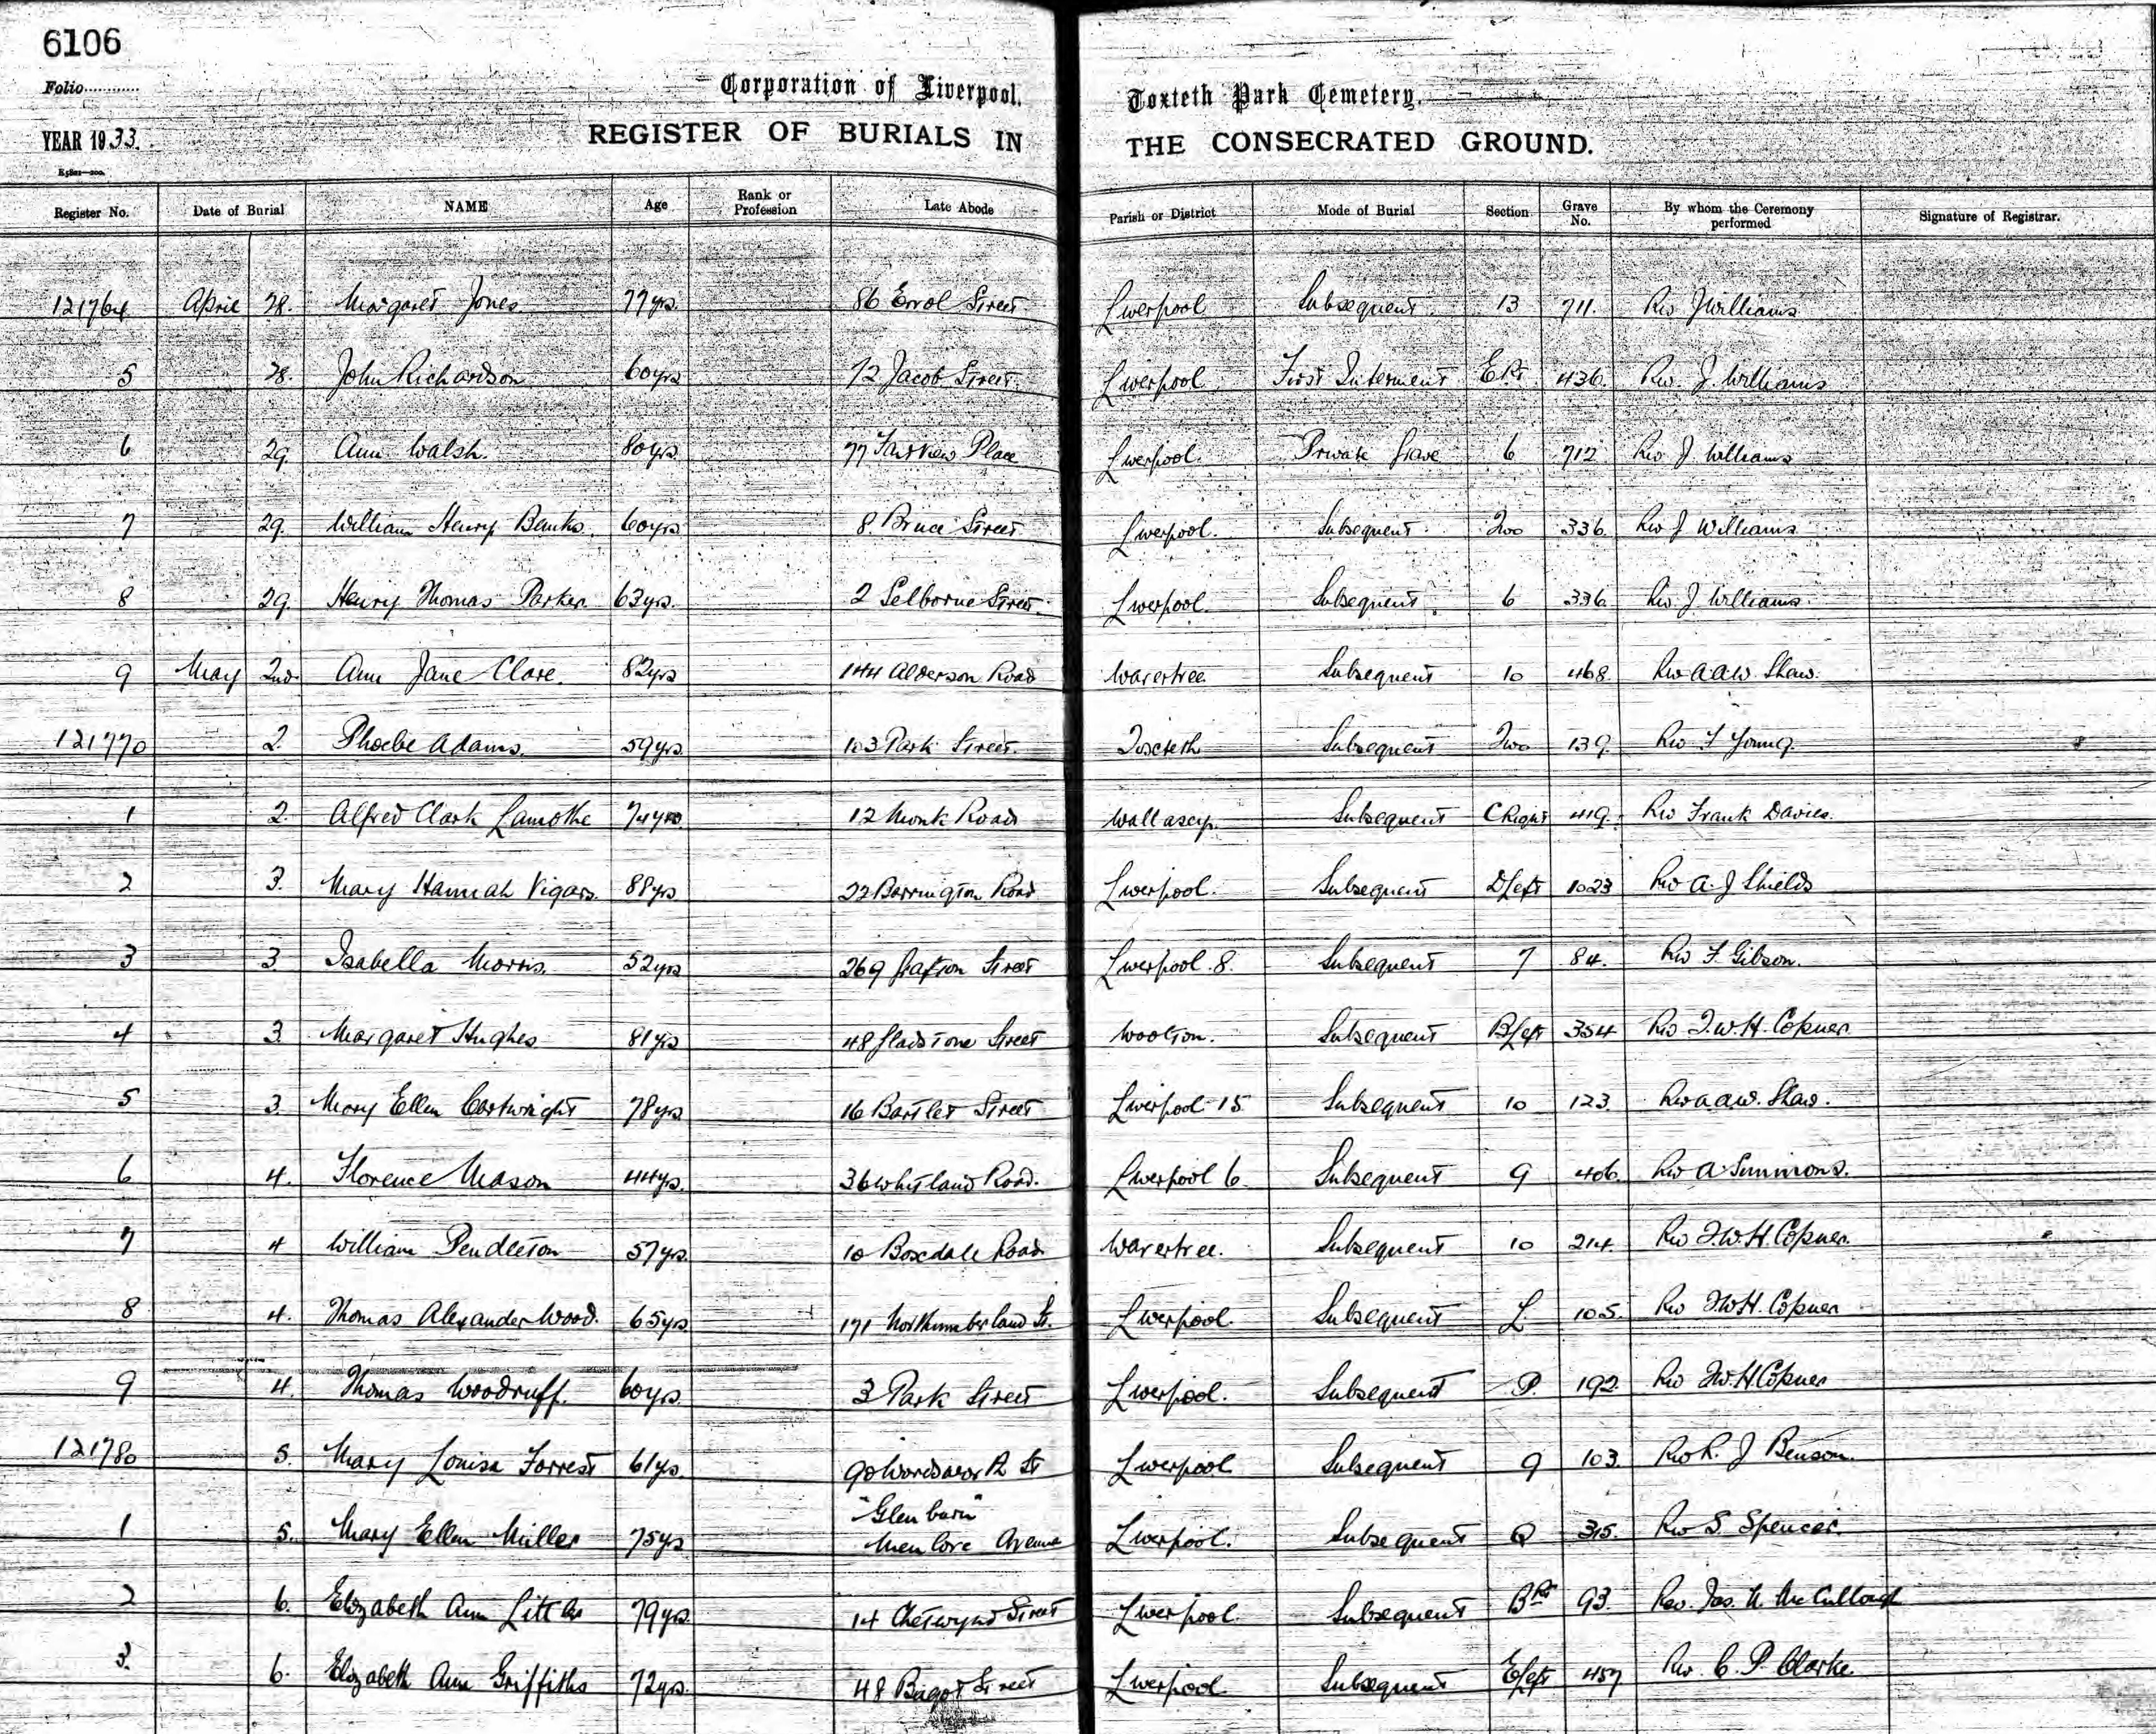 6106
Folio............
YEAR 1933.
Corporation of Liverpool. Toxteth Park Cemetery.
REGISTER OF BURIALS IN THE CONSECRATED GROUND.
Register No. Date of Burial NAME Age Rank or Profession Late Abode Parish or District Mode of Burial Section Grave No. By whom the Ceremony performed Signature of Registrar.
121764 April 28. Margaret Jones 77yrs. 86 Errol Street Liverpool Subsequent 13 711. Rev J Williams
5 28. John Richardson 60yrs 72 Jacob Street Liverpool First Interment E Rt 436. Rev. J. Williams
6 29 Ann Walsh. 80yrs 77 Fairview Place Liverpool. Private Grave 6 712 Rev J Williams
7 29. William Henry Banks. 60yrs 8 Bruce Street Liverpool. Subsequent Two 336. Rev J Williams
8 29. Henry Thomas Parker 63yrs. 2 Selborne Street Liverpool. Subsequent 6 336 Rev J Williams.
9 May 2nd Ann Jane Clare. 82yrs 144 Alderson Road Wavertree Subsequent 10 468. Rev A.A.W. Shaw.
121770 2. Phoebe Adams. 59yrs. 103 Park Street. Toxteth Subsequent Two 139. Rev F Young.
1 2. Alfred Clark Lamothe 74yrs. 12 Monk Road Wallasey. Subsequent C Right 419. Rev Frank Davies.
2 3. Mary Hannah Vigars. 88yrs 22 Barrington Road Liverpool. Subsequent D Left 1023 Rev A. J Shields
3 3 Isabella Morris. 52yrs 269 Grafton Street Liverpool. 8. Subsequent 7 84. Rev F. Gibson.
4 3. Margaret Hughes 81yrs 48 Gladstone Street Woolton. Subsequent B Left 354 Rev T.W.H. Copner
5 3. Mary Ellen Cartwright 78yrs 16 Bartlet Street Liverpool 15 Subsequent 10 123. Rev A A.W. Shaw.
6 4. Florence Mason 44yrs. 36 Whitland Road. Liverpool 6. Subsequent 9 406. Rev A Simmons.
7 4 William Pendleton 57yrs. 10 Boxdale Road Wavertree. Subsequent 10 214. Rev T.W.H. Copner.
8 4. Thomas Alexander Wood. 65yrs 171 Northumberland St. Liverpool. Subsequent L 105. Rev T.W.H. Copner
9 4. Thomas Woodruff. 60yrs. 3 Park Street Liverpool. Subsequent P. 192. Rev T.W.H Copner
121780 5. Mary Louisa Forrest 61yrs 90 Wordsworth St Liverpool Subsequent 9 103. Rev R. J Benson.
1 5. Mary Ellen Miller 75yrs "Glenburn"
Menlove Avenue Liverpool. Subsequent Q 315. Rev S. Spencer.
2 6. Elizabeth Ann Littler 79yrs. 14 Chetwynd Street Liverpool. Subsequent B Rt 93. Rev. Jas. McCullough
3. 6. Elizabeth Ann Griffiths 72yrs. 48 Bagot Street Liverpool. Subsequent E Left 457 Rev. C. P. Clarke.